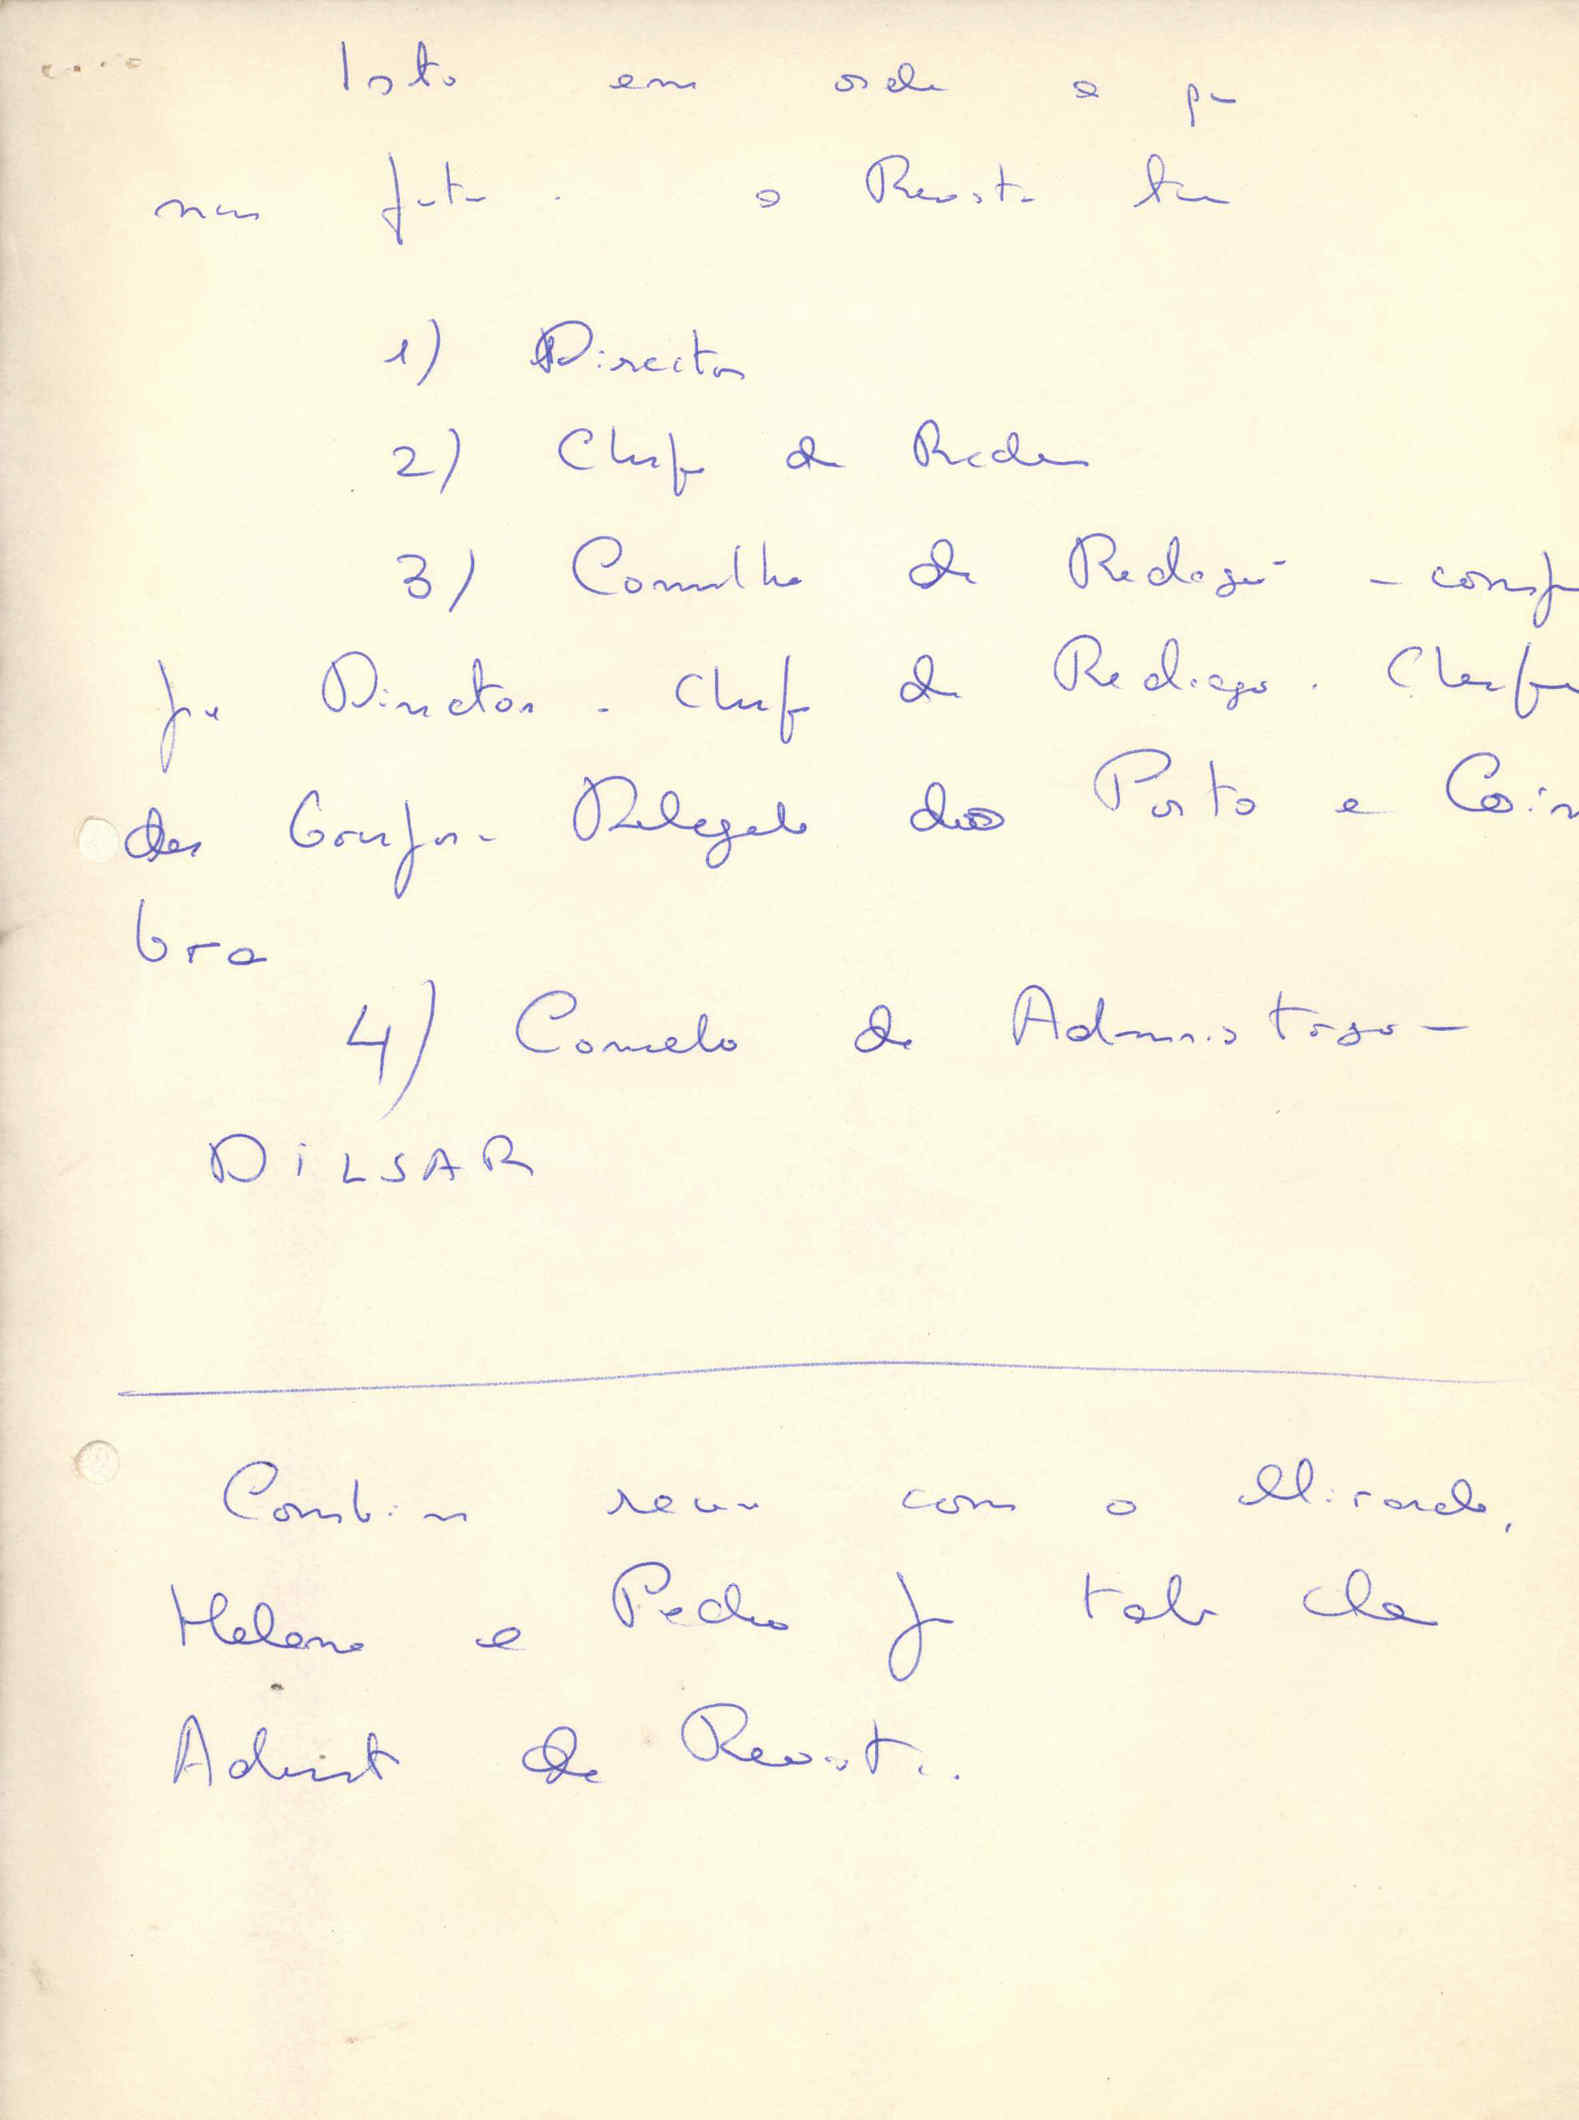 Isto em ordem a que
num futuro a Revista tem
1) Director
2) Chefe de Redac
3) Conselho de Redacção - comp
Director - Chefe de Redacção - Chefes
dos Grupos - Delegado do Porto e Coim
bra
4) Conselho de Administração -
DILSAR
Combinar reunião com o Mirando,
Helena e Pedro p tab da
Administ da Revista.